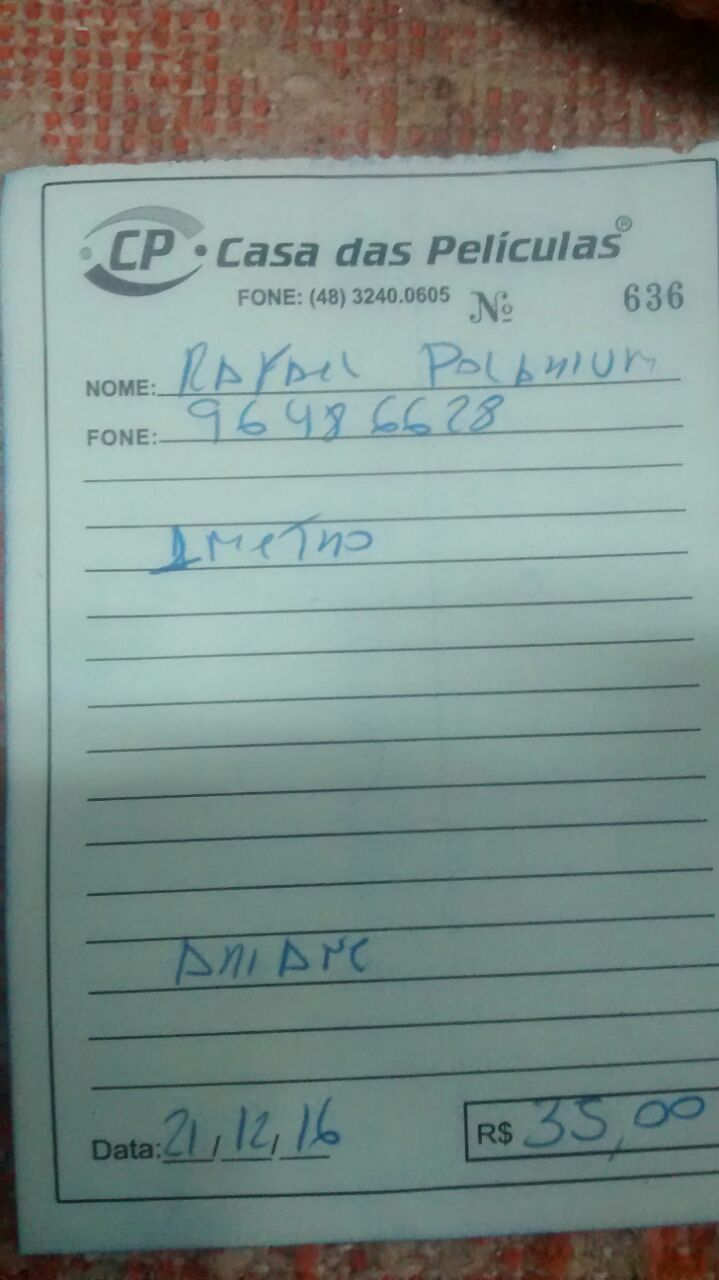 CP Casa das Películas®
FONE: (48) 3240.0605 Nº 636
NOME: Rafael
FONE: 96486628
1 metro
Data: 21/12/16 R$ 35,00